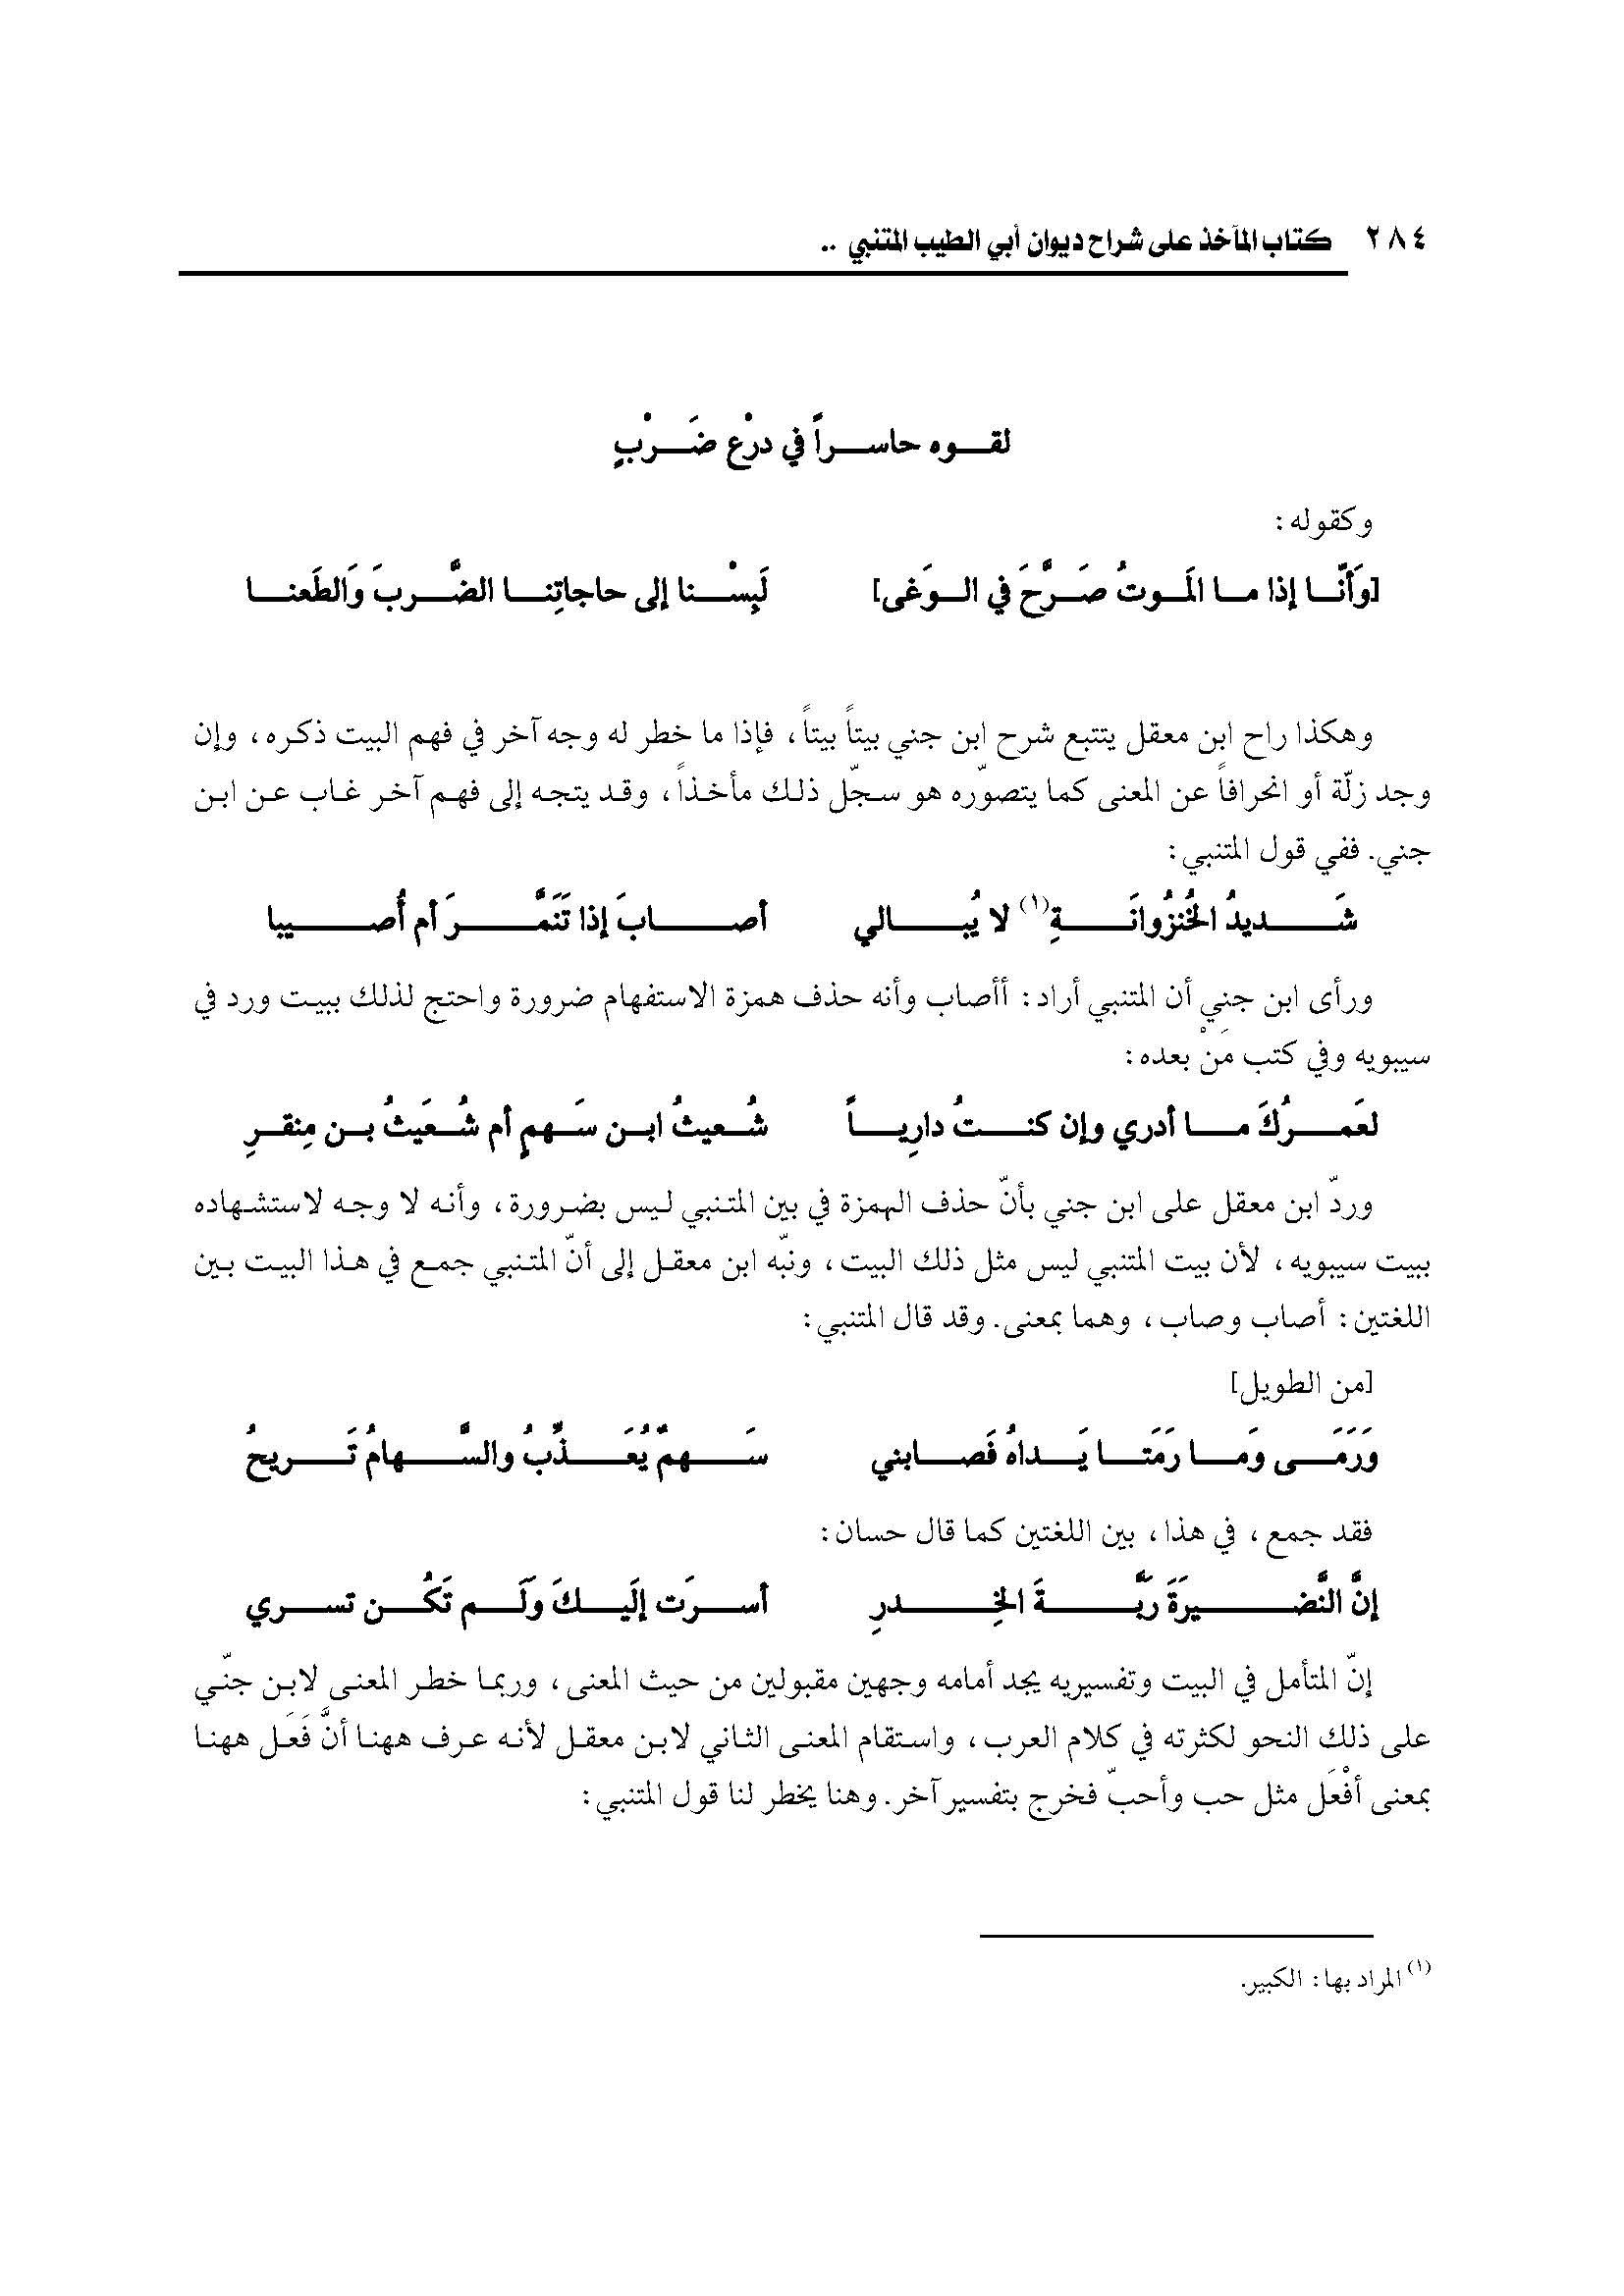 ٢٨٤ كتاب المآخذ على شراح ديوان أبي الطيب المتنبي ..
لقوه حاسراً في درْع ضَرْبٍ
وكقوله:
[وَأنّا إذا ما المَوتُ صَرَّحَ في الوَغى] لَبِسْنا إلى حاجاتِنا الضَّربَ وَالطَعنا
وهكذا راح ابن معقل يتتبع شرح ابن جني بيتاً بيتاً، فإذا ما خطر له وجه آخر في فهم البيت ذكره، وإن
وجد زلّة أو انحرافاً عن المعنى كما يتصوّره هو سجّل ذلك مأخذاً، وقد يتجه إلى فهم آخر غاب عن ابن
جني. ففي قول المتنبي:
شَديدُ الخُنزُوانَةِ(١) لا يُبالي أصابَ إذا تَنَمَّرَ أم أُصيبا
ورأى ابن جني أن المتنبي أراد: أأصاب وأنه حذف همزة الاستفهام ضرورة واحتج لذلك ببيت ورد في
سيبويه وفي كتب مَنْ بعده:
لعَمرُكَ ما أدري وإن كنتُ دارِياً شُعيثُ ابن سَهمٍ أم شُعَيثُ بن مِنقرِ
وردّ ابن معقل على ابن جني بأنّ حذف الهمزة في بين المتنبي ليس بضرورة، وأنه لا وجه لاستشهاده
ببيت سيبويه، لأن بيت المتنبي ليس مثل ذلك البيت، ونبّه ابن معقل إلى أنّ المتنبي جمع في هذا البيت بين
اللغتين: أصاب وصاب، وهما بمعنى. وقد قال المتنبي:
[من الطويل]
وَرَمَى وَما رَمَتا يَداهُ فَصابني سَهمٌ يُعَذِّبُ والسَّهامُ تَريحُ
فقد جمع، في هذا، بين اللغتين كما قال حسان:
إنَّ النَّضيرَةَ رَبَّةَ الخِدرِ أسرَت إلَيكَ وَلَم تَكُن تسري
إنّ المتأمل في البيت وتفسيريه يجد أمامه وجهين مقبولين من حيث المعنى، وربما خطر المعنى لابن جنّي
على ذلك النحو لكثرته في كلام العرب، واستقام المعنى الثاني لابن معقل لأنه عرف ههنا أنَّ فَعَل ههنا
بمعنى أفْعَل مثل حب وأحبّ فخرج بتفسير آخر. وهنا يخطر لنا قول المتنبي:
(١) المراد بها: الكبير.